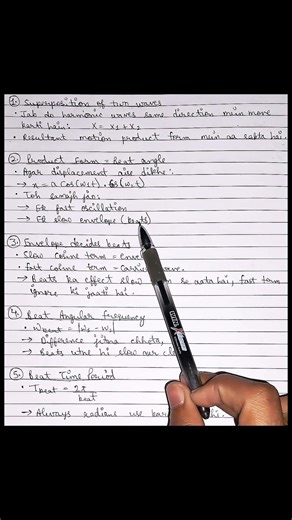 ① Superposition of two waves
• Jab do harmonic waves same direction mein move
karti hain: x = x₁ + x₂
• Resultant motion product form mein aa sakta hai.
② Product Form = Beat angle
• Agar displacement aise dikhe:
→ x = a Cos(w₁t) . Cos(w₂t)
• Toh samajh jao:
→ Ek fast oscillation
→ Ek slow envelope (beats)
③ Envelope decides beats
• Slow cosine term = Enve
• Fast cosine term = Carrier wave.
→ Beats ka effect slow se aata hai, fast term
ignore ki jaati hai.
④ Beat Angular Frequency
• Wbeat = |w₂ - w₁|
→ Difference jitna chhota,
→ Beats utne hi slow
⑤ Beat Time Period
• Tbeat = 2π
beat
→ Always radians use hi.